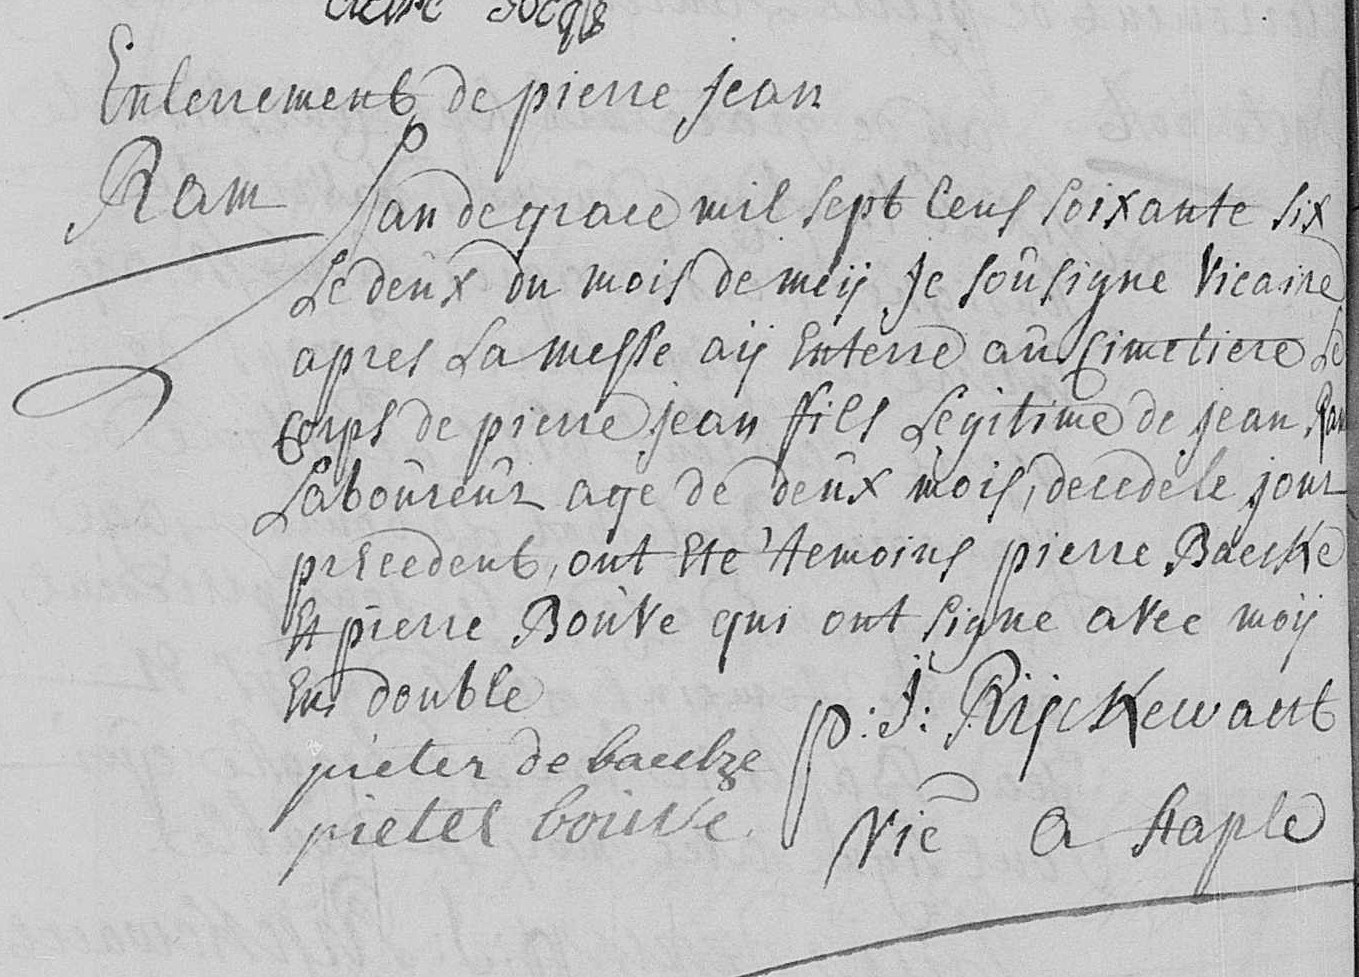 Enterrement de pierre jean
Ram
Lan de grace mil sept Cens soixante six
Le deûx du mois de meij Je soûsigne Vicaire
apres La messe aij Enterre aû Cimetiere Le
corps de pierre jean ffils Legitime de jean Ram
Laboûreûr age de deûx mois, decede le jour
precedent, ont Ete temoins pierre Baecke
Et pierre Boûve qui ont signe avec moij
En double
p: J: Rijckewaert
pieter de baecke
pieter bouve
Vic a Staple